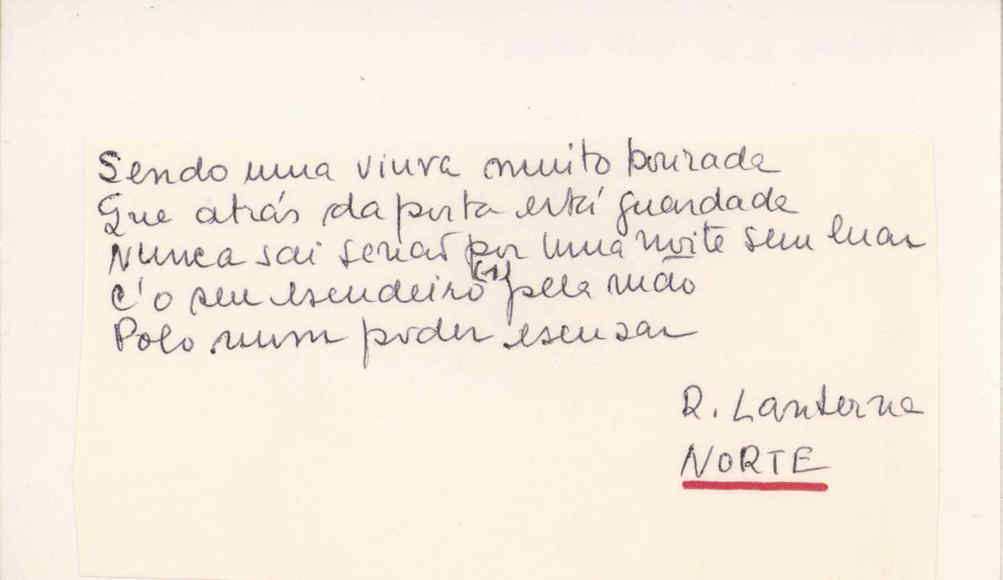 Sendo uma viuva muito honrada
Que atrás da porta está guardada
Nunca sai senaõ por uma noite sem luar
C'o seu escudeiro (1) pela maõ
Polo num poder escusar
R. Lanterna
NORTE